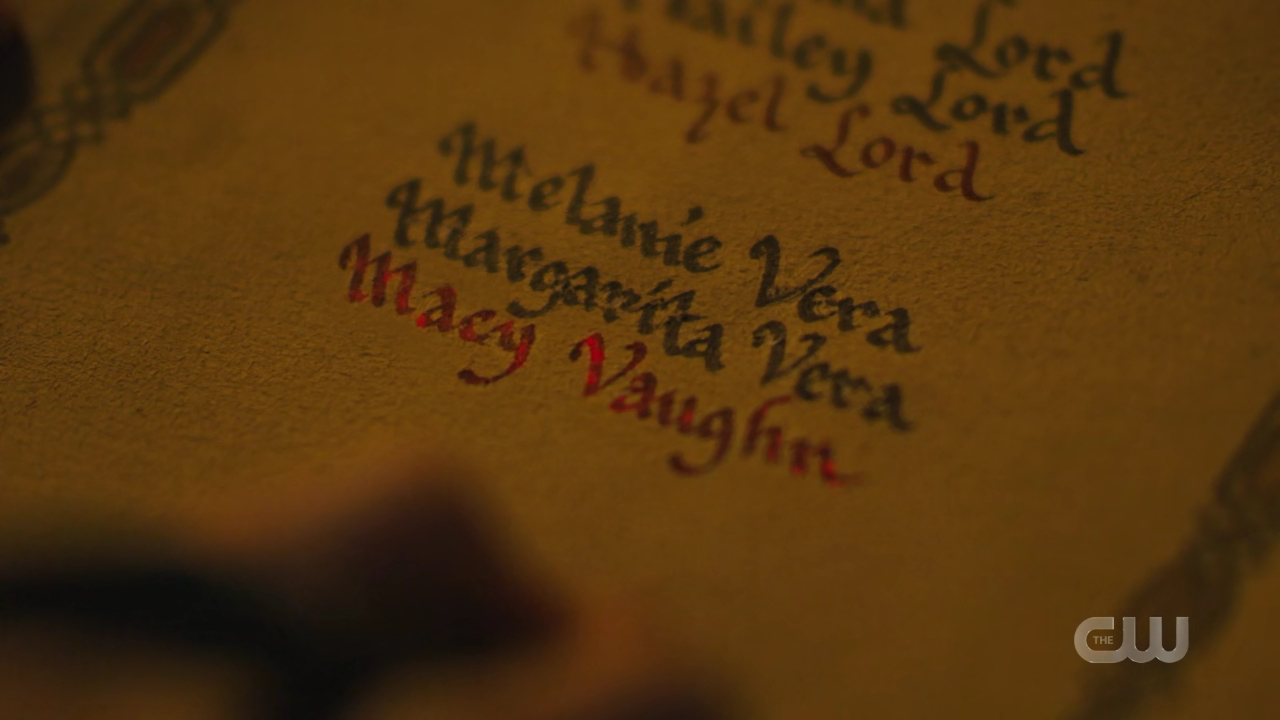 Lord
Hailey Lord
Hazel Lord
Melanie Vera
Margarita Vera
Macy Vaughn
THE CW